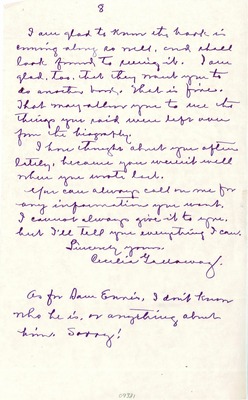 8
I am glad to know the book is
coming along so well, and shall
look forward to seeing it. I am
glad, too, that they want you to
do another book. That is fine.
That may allow you to use the
things you said were left over
from the biography.
I have thought about you often
lately, because you weren't well
when you wrote last.
You can always call on me for
any information you want.
I cannot always give it to you,
but I'll tell you everything I can.
Sincerely yours,
Cecilia
As for Dave Ennis, I don't know
who he is, or anything about
him. Sorry!